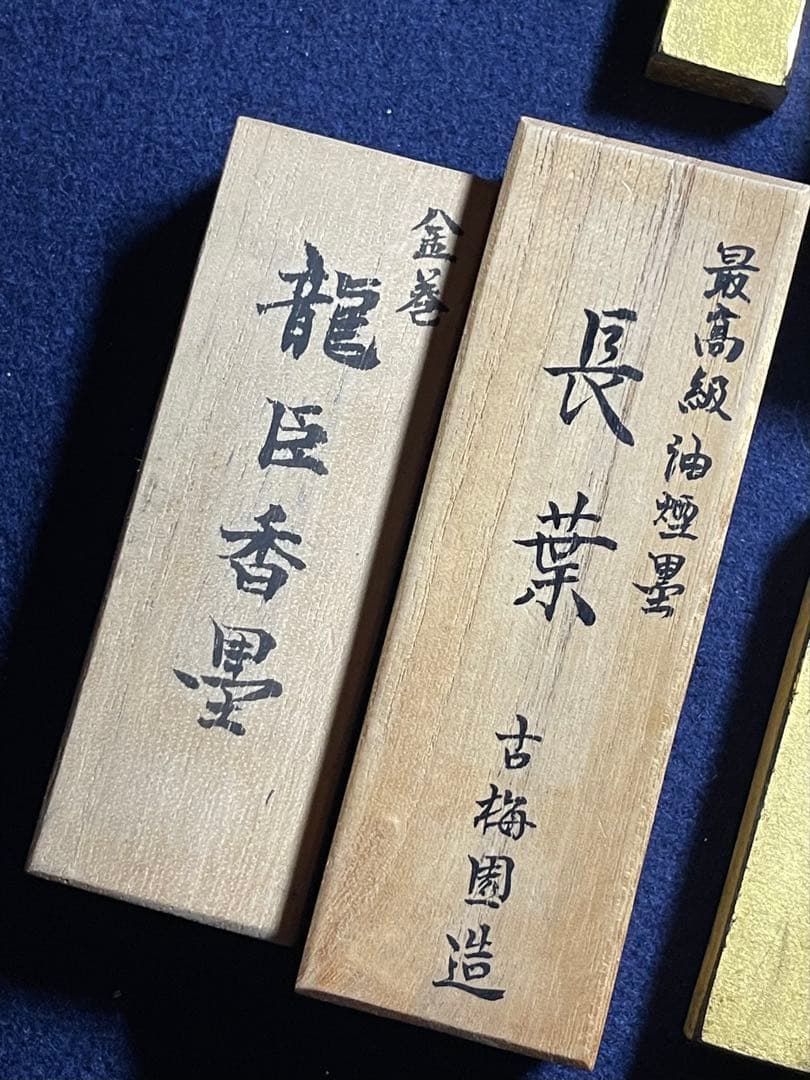 最高級油煙墨
長葉
古梅園造
金巻
龍臣香墨